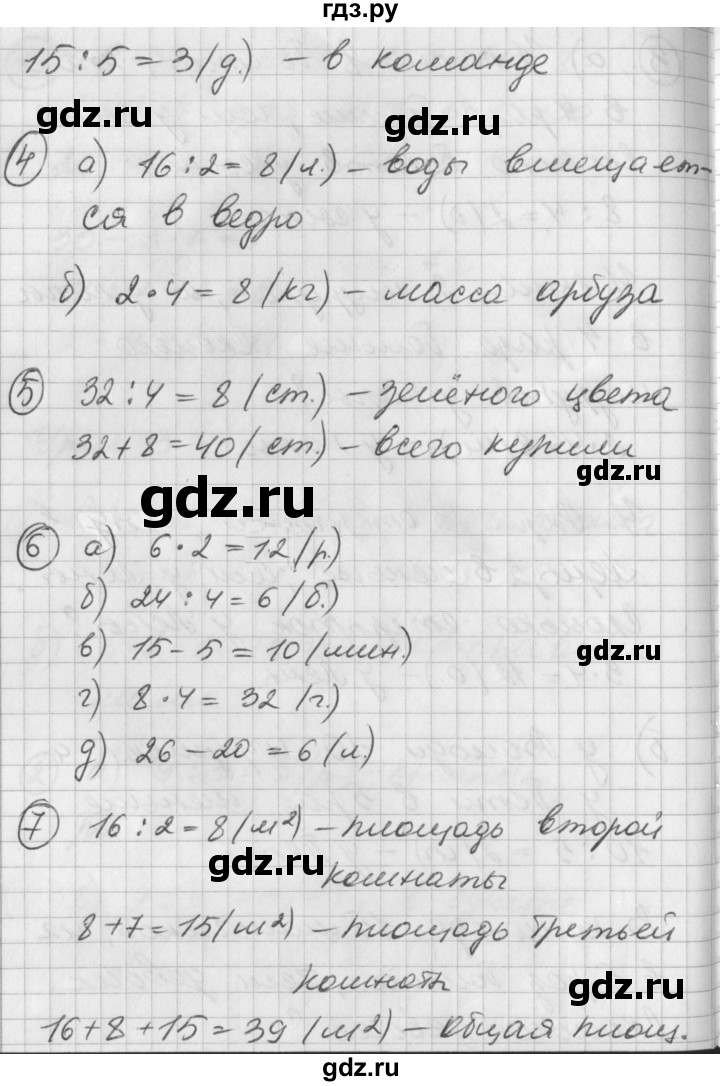 гдз.ру
15 : 5 = 3 (д.) – в команде
gdz.ru gdz.ru
4 а) 16 : 2 = 8 (л.) – воды вмещает-
ся в ведро
б) 2 · 4 = 8 (кг) – масса арбуза
5 32 : 4 = 8 (ст.) – зелёного цвета
32 + 8 = 40 (ст.) – всего купили
gdz.ru
gdz.ru
6 а) 6 · 2 = 12 (р.)
б) 24 : 4 = 6 (б.)
в) 15 – 5 = 10 (мин.)
gdz.ru
г) 8 · 4 = 32 (г.)
д) 26 – 20 = 6 (л.)
7 16 : 2 = 8 (м²) – площадь второй
gdz.ru
комнаты
8 + 7 = 15 (м²) – площадь третьей
комнаты
gdz.ru
16 + 8 + 15 = 39 (м²) – общая площ.
gdz.ru